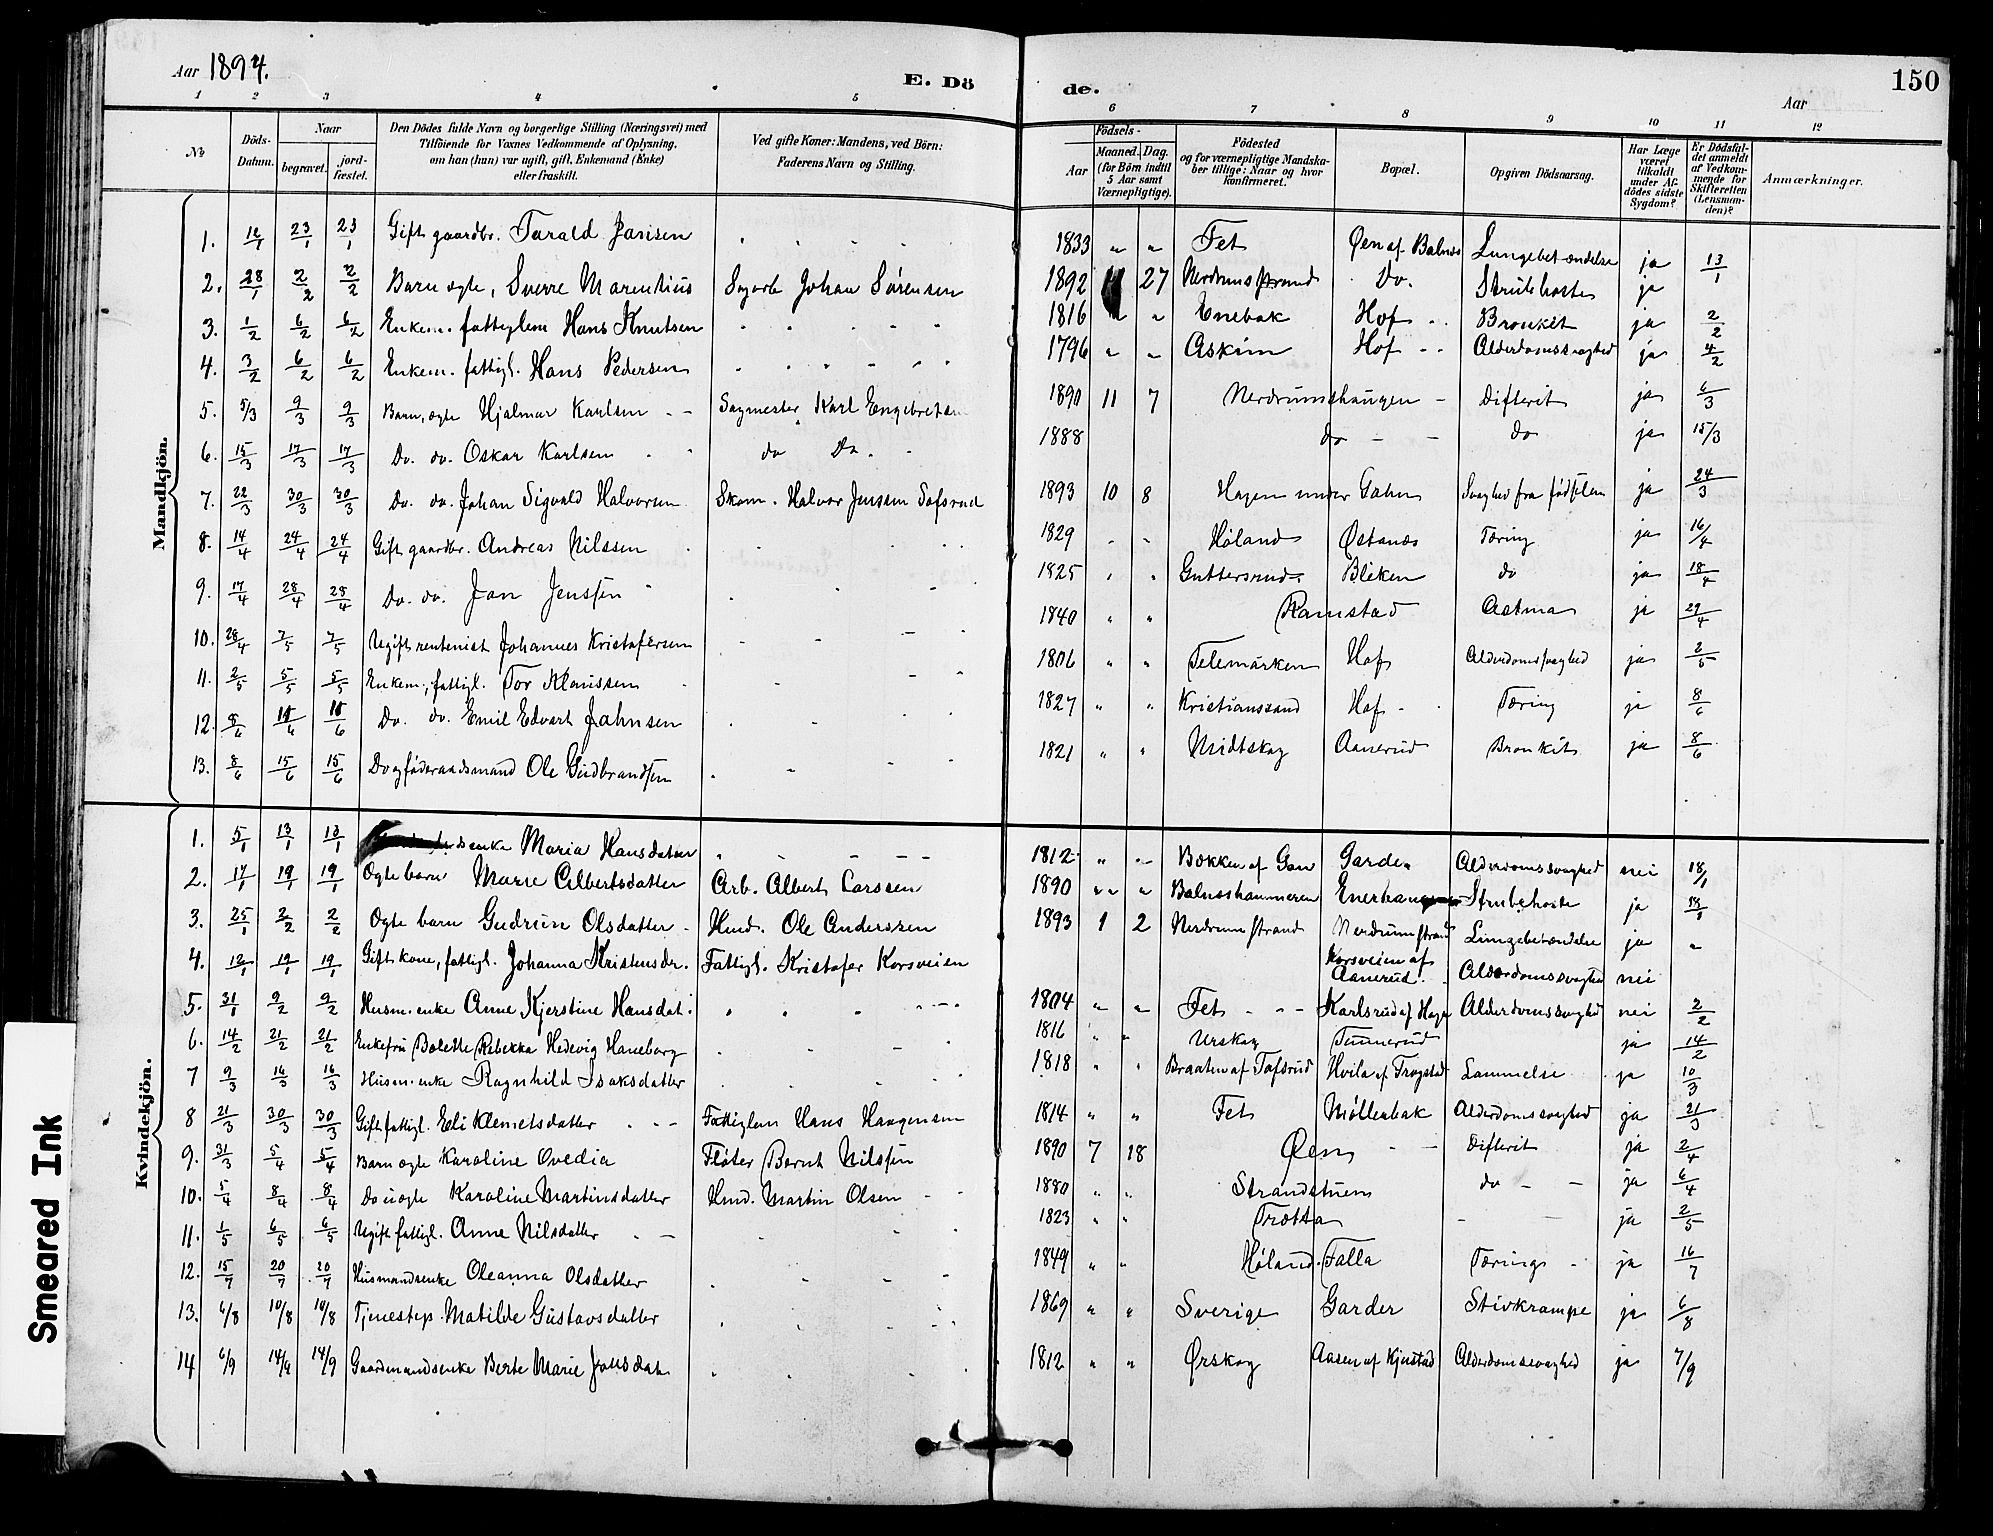 Aar 1894.
E. Dö
de.
Aar
150
1 2 3 4 5 6 7 8 9 10 11 12
No
Döds-Datum.
Naar
begravet.
jord-fæstet.
Den Dödes fulde Navn og borgerlige Stilling (Næringsvei) med
Tilföiende for Voxnes Vedkommende af Oplysning,
om han (hun) var ugift, gift, Enkemand (Enke)
eller fraskilt.
Ved gifte Koner: Mandens, ved Börn:
Faderens Navn og Stilling.
Födsels-
Aar
Maaned. Dag.
(for Börn indtil
5 Aar samt
Værnepligtige).
Födested
og for værnepligtige Mandska-
ber tillige: Naar og hvor
konfirmeret.
Bopæl.
Opgiven Dödsaarsag.
Har Læge
været
tilkaldt
under Af-
dödes sidste
Sygdom?
Er Dödsfal-
det anmeldt
af Vedkom-
mende for
Skifteretten
(Lensman-
den)?
Anmærkninger.
Mandkjön.
1. 23/1 23/1 Gift gaardbr. Tarald 1833 " " Fet Øen af Balnes Lungebetændelse ja 13/1
2. 28/1 2/2 2/2 Barn ægte, Sverre Marentius Sagarb Johan Sørensen 1892 27 Nerdrumstrand Do. Strubehoste ja
3. 1/2 6/2 6/2 Enkem. fattiglem Hans Knutsen 1816 " " Enebak Hof Bronkit ja 2/2
4. 3/2 6/2 6/2 Enkem. fattigl. Hans Pedersen 1796 " " Askim Hof Alderdomssvaghed ja 4/2
5. 5/3 9/3 9/3 Barn, ægte Hjalmar Karlsen Sagmester Karl Engebretsen 1890 11 7 Nerdrumshaugen Difterit ja 6/3
6. 15/3 17/3 17/3 Do. do. Oskar Karlsen do Do. 1888 do do ja 15/3
7. 22/3 30/3 30/3 Do. do. Johan Sigvald Halvorsen Skom. Halvor Jenssen 1893 10 8 Hagen under Svaghed fra fødselen ja 24/3
8. 14/4 24/4 24/4 Gift gaardbr. Andreas Nilssen 1829 Høland Østanes Tæring ja 16/4
9. 17/4 28/4 28/4 Do. do. Jan Jenssen 1825 " " Guttersrud Bliken do ja 18/4
10. 28/4 7/5 7/5 Ugift rentenist Johannes Kristofersen 1840 " " Ramstad Astma ja 29/4
11. 2/5 5/5 5/5 Enkem., fattigl. Tor Klaussen 1806 " " Telemarken Hof Alderdomssvaghed ja 2/5
12. Do. do. Emil Edvart Jahnsen 1827 " " Kristianssand Hof Tæring ja 8/6
13. 8/6 15/6 15/6 Do og föderaadsmand Ole Gudbrandsen 1821 " " Midtskog Aanerud Bronkit ja 8/6
Kvindekjön.
1. 5/1 13/1 13/1 enke Maria Hansdatter 1812 " Bækken af Gan Garder Alderdomssvaghed nei 18/1
2. 17/1 19/1 19/1 Ægte barn Marie Albertsdatter Arb. Albert Larssen 1890 " " Balnesshammeren Strubehoste ja 18/1
3. 25/1 2/2 2/2 Ægte barn Gudrun Olsdatter Hmd. Ole Anderssen 1893 1 2 Nerdrumstrand Nerdrumstrand Lungebetændelse ja "
4. 12/1 19/1 19/1 Gift kone, fattigl. Johanna Kristensdr. Fattigl. Kristofer Korsveien Korsveien af Aanerud. Alderdomssvaghed nei
5. 31/1 9/2 9/2 Husm. enke Anne Kjerstine Hansdat. 1804 " " Fet Karlsrud af Hage Alderdomssvaghed nei 2/2
6. 14/2 21/2 21/2 Enkefru Bolette Rebekka Hedevig Haneborg 1816 " " Urskog Tunnerud ja 14/2
7 9/3 16/3 16/3 Husm. enke Ragnhild Isaksdatter 1818 " " Braaten af Tofsrud Hvila af Trogstad Lammelse ja 10/3
8 21/3 30/3 30/3 Gift fattigl. Eli Klemetsdatter Fattiglem Hans Haagensen 1814 " " Fet Møllerbak Alderdomssvaghed ja 21/3
9. 31/3 5/4 5/4 Barn ægte Karoline Ovedia Fløter Bernt Nilssen 1890 7 18 Øen Difterit ja 2/4
10. 5/4 8/4 8/4 Do uægte Karoline Martinsdatter Hmd. Martin Olsen 1880 " " Strandstuen do ja 6/4
11. 1/5 6/5 6/5 Ugift fattigl. Anne Nilsdatter 1823 " " Trætta ja 2/5
12. 15/7 20/7 20/7 Husmandsenke Oleanna Olsdatter 1849 " " Høland Falla Tærings ja 16/7
13. 6/8 10/8 10/8 Tjenestep. Matilde Gustavsdatter 1869 " " Sverige Garder Stivkrampe ja 6/8
14 6/9 14/9 14/9 Gaardmandsenke Berte Marie Jonsdat. 1812 " " Ørskog Aasen af Kjustad Alderdomssvaghed ja 7/9
Smeared Ink